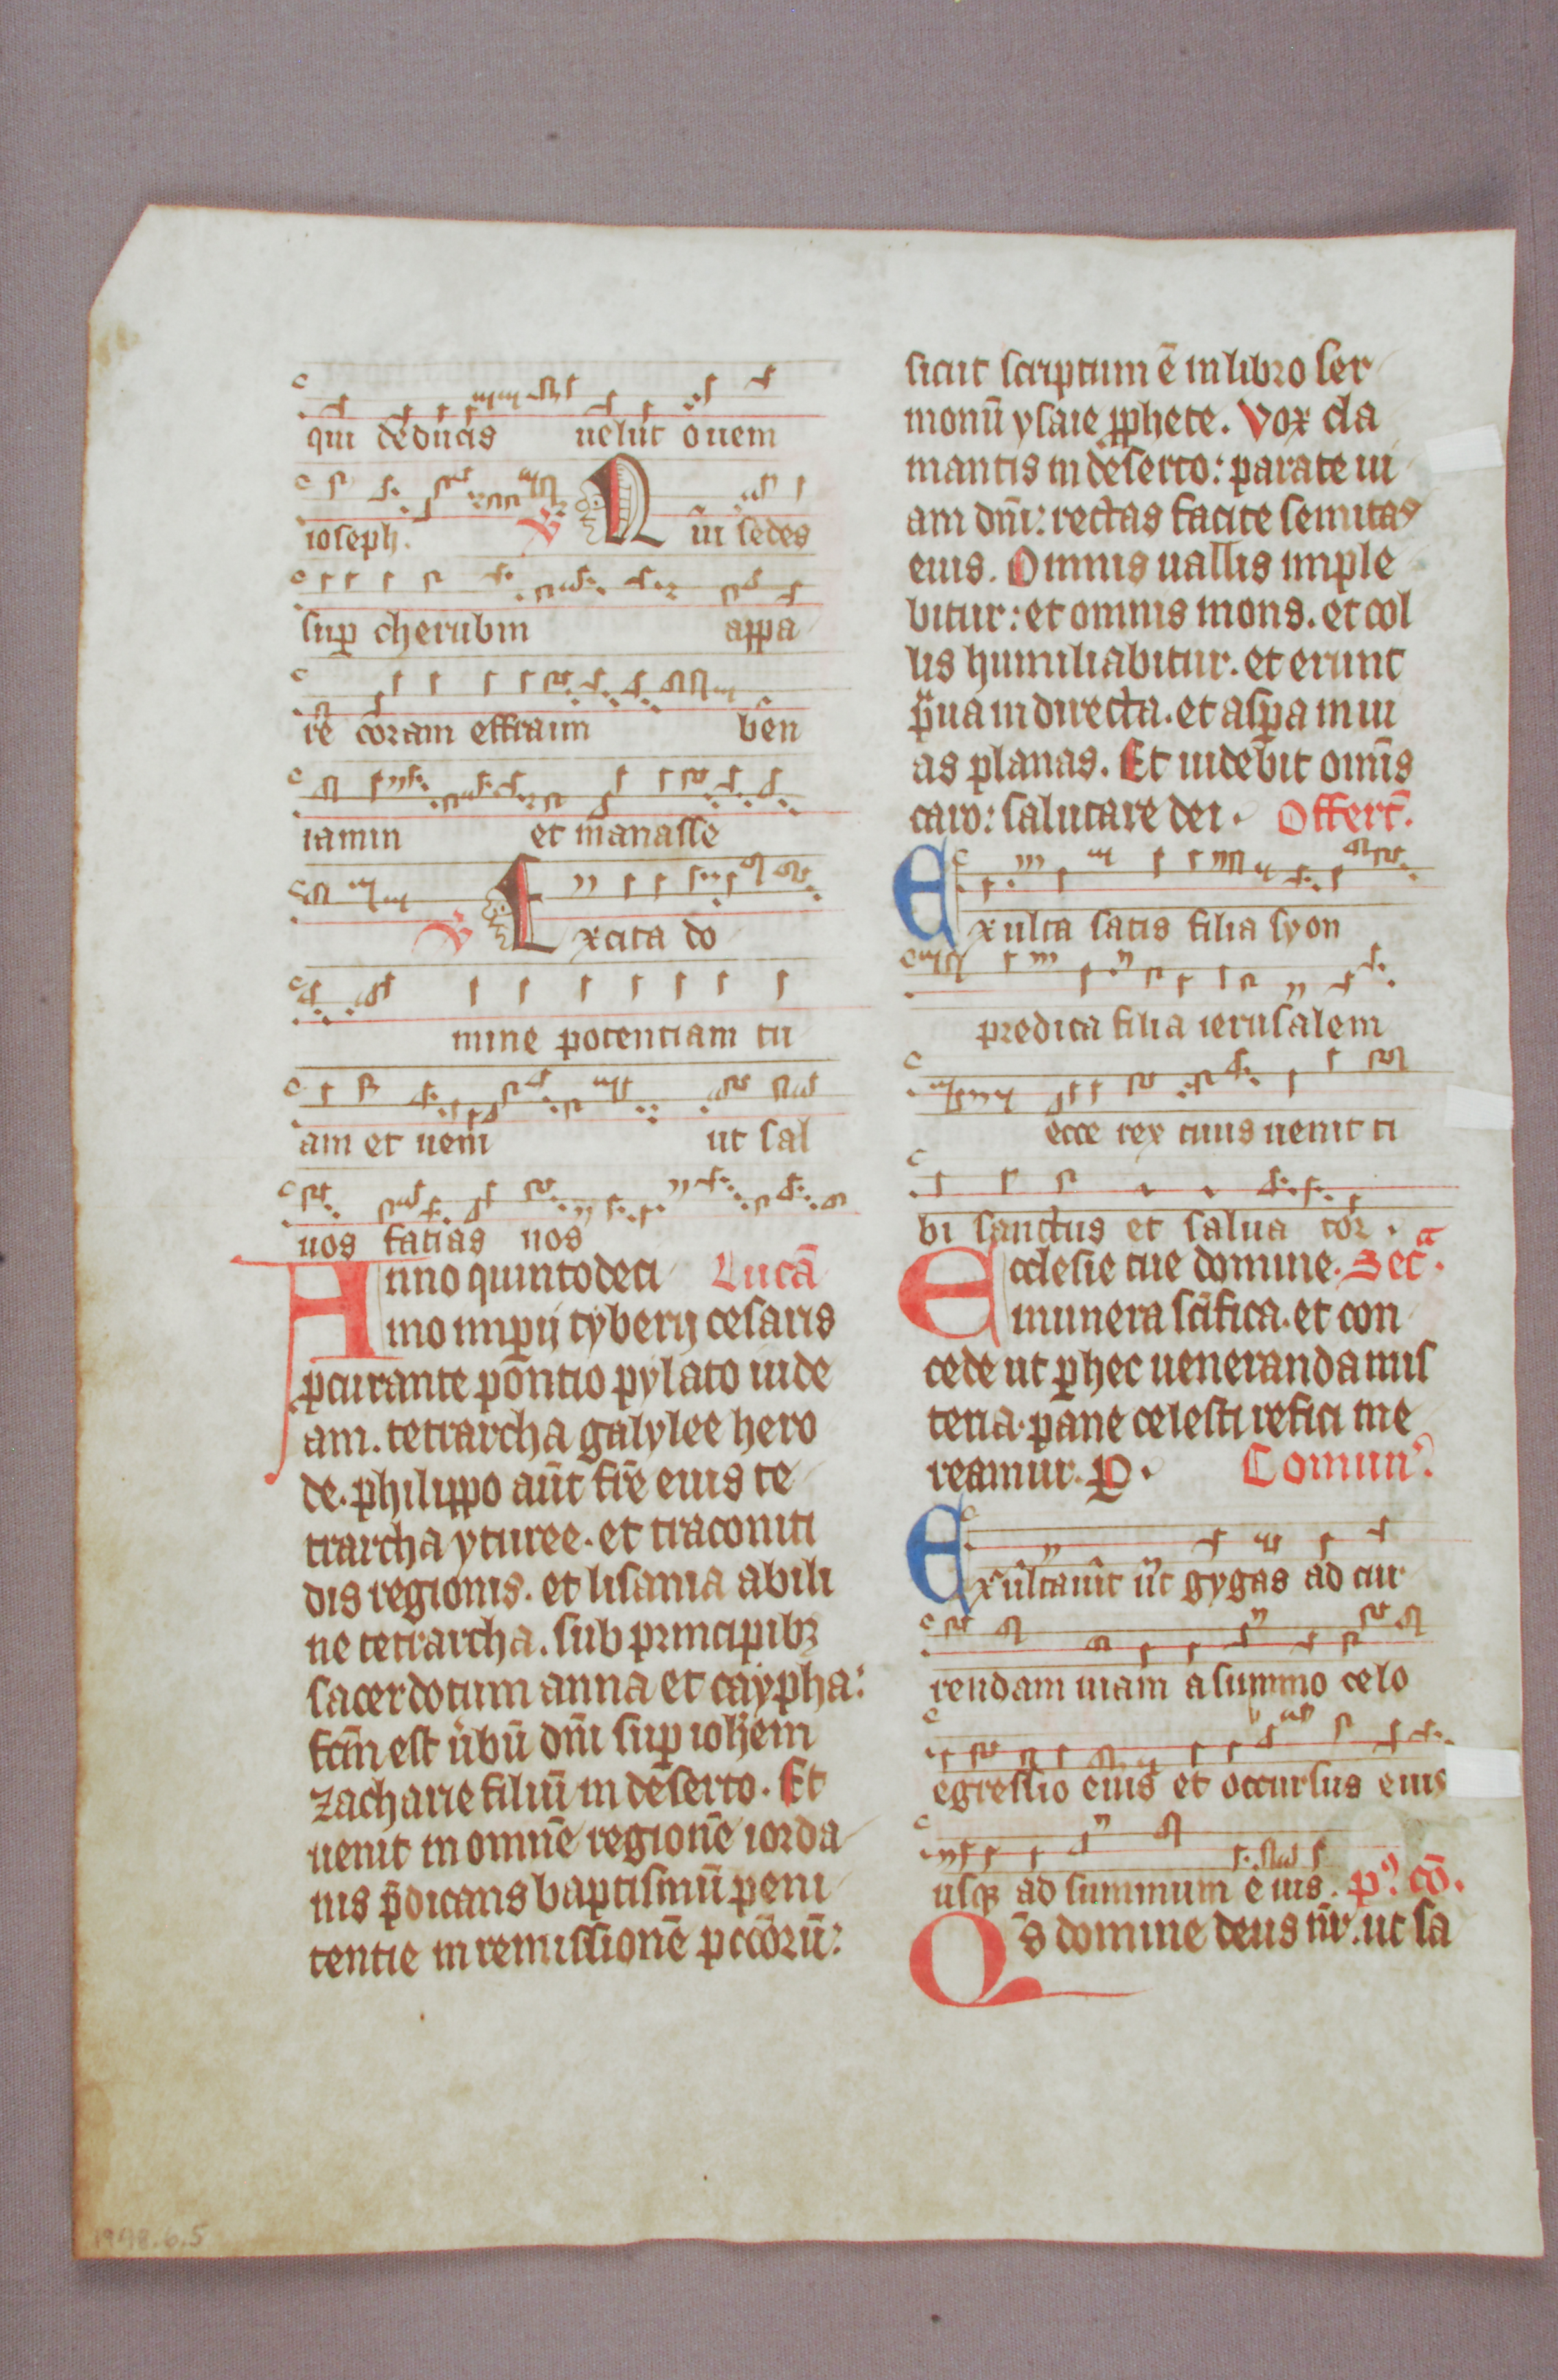 qui deducis uelut ouem
ioseph. V Qui sedes
sup cherubin appa
re coram effraim ben
iamin et manasse
V Excita do
mine potentiam tu
am et ueni ut sal
uos facias nos
Anno quintodeci Lucā
mo imp̄ij tyberij cesaris
ꝓcurante pontio pylato iude
am. tetrarcha galylee hero
de. philippo aūt fr̄e eius te
trarcha yturee. et traconiti
dis regionis. et lisania abili
ne tetrarcha. sub principibꝫ
sacerdotum anna et caypha:
fcm̄ est ūbū dn̄i suꝑ ioh̄em
zacharie filiū in deserto. Et
uenit in omnē regionē iorda
nis p̄dicans baptismū peni
tentie in remissionē pccōrū:
sicut scriptum ē in libro ser
monū ysaie ꝓphete. Vox cla
mantis in deserto: parate ui
am dn̄i: rectas facite semitas
eius. Omnis uallis imple
bitur: et omnis mons. et col
lis humiliabitur. et erunt
p̄ua in directa. et aspa in ui
as planas. Et uidebit omīs
caro: salutare dei. Offert̄.
Exulta satis filia syon
predica filia ierusalem
ecce rex tuus uenit ti
bi sanctus et salua tor.
Ecclesie tue domine. Secᵃ.
munera sc̄ifica. et con
cede ut ꝑ hec ueneranda mis
teria. pane celesti refici me
reamur. P. Comunꝰ.
Exultauit ut gygas ad cur
rendam uiam a summo celo
egressio eius et occursus eius
usqꝫ ad summum eius. pꝰ. cō.
Qs̄ domine deus nr̄. ut sa
1948.6.5